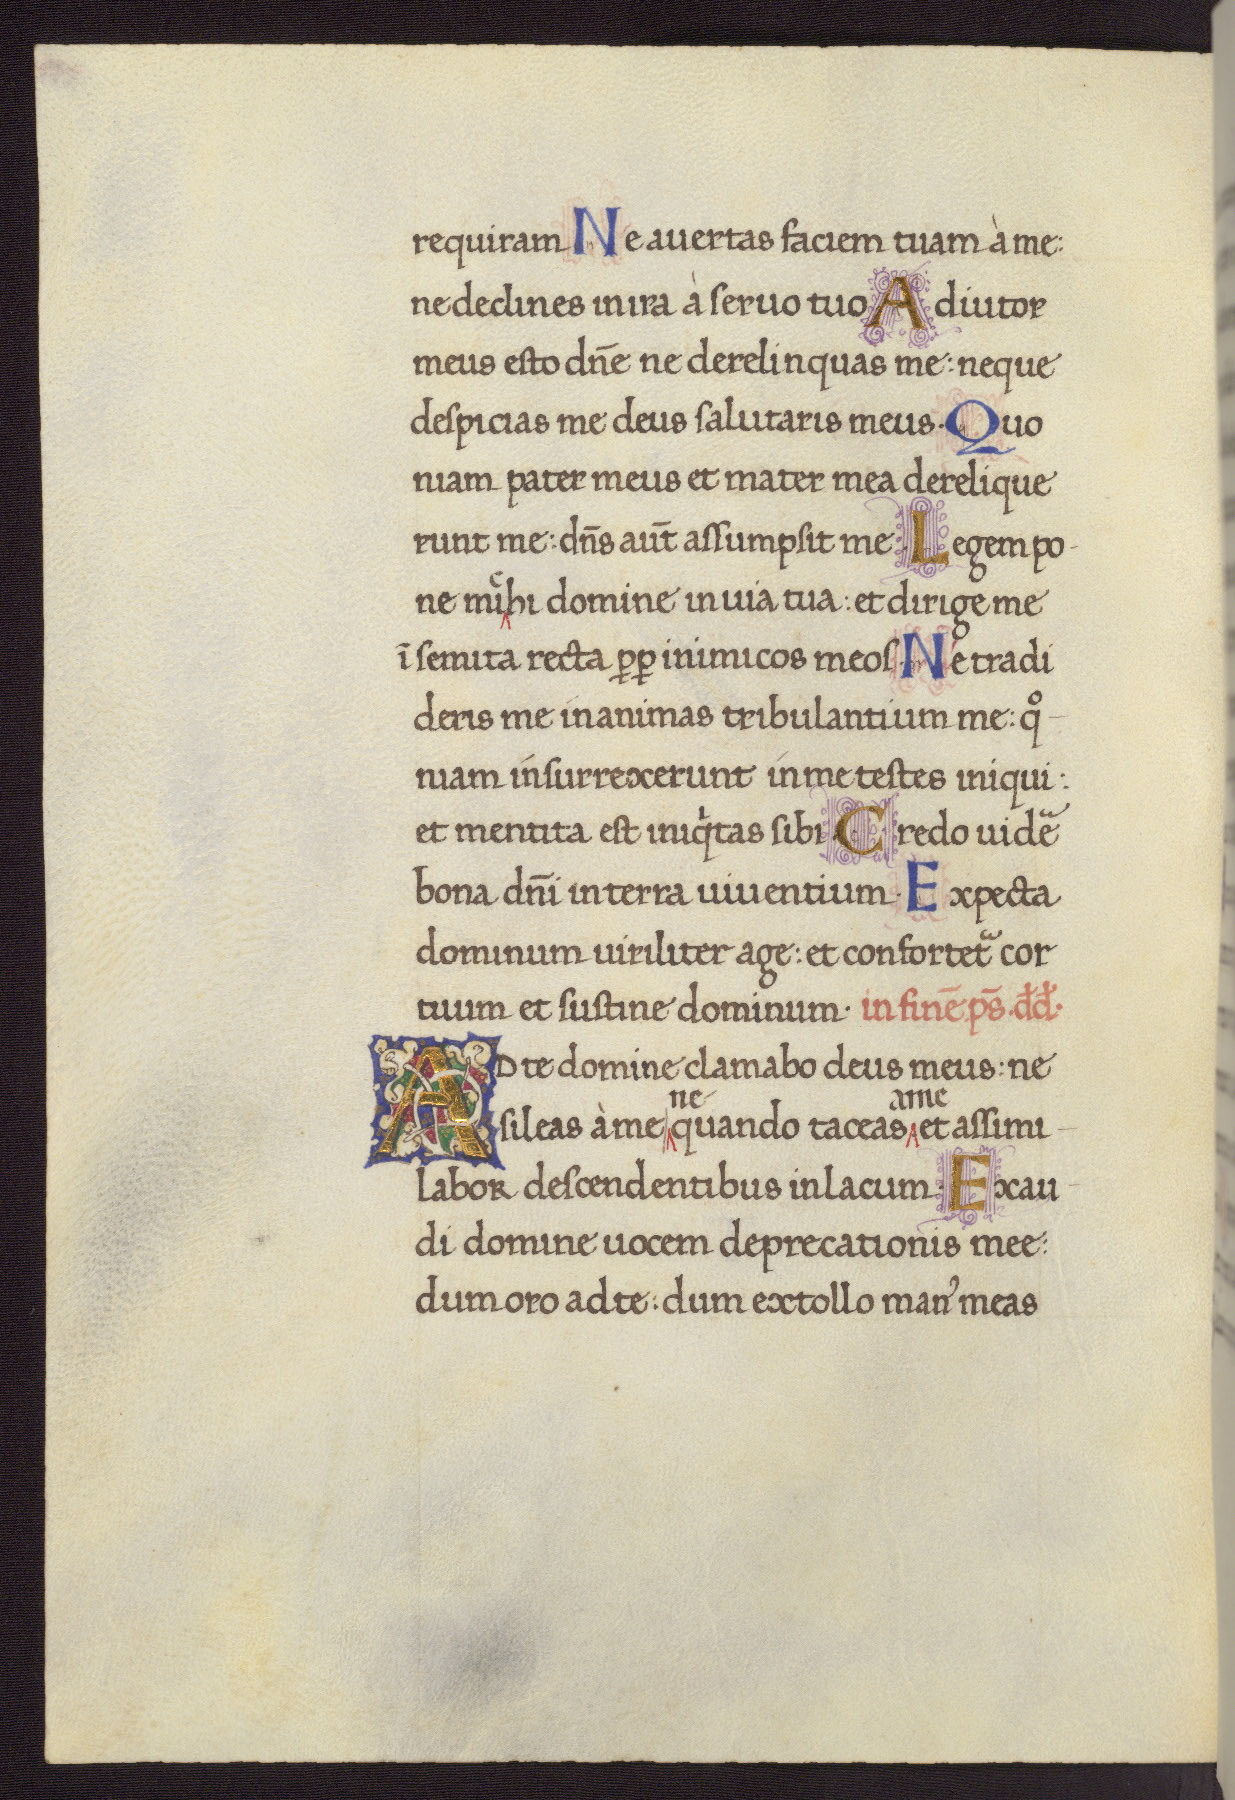 requiram Ne auertas faciem tuam à me:
ne declines in ira à seruo tuo Adiutor
meus esto dn̄e ne derelinquas me: neque
despicias me deus salutaris meus. Quo
niam pater meus et mater mea derelique
runt me: dn̄s aut̄ assumpsit me. Legem po-
ne mi^chi domine in uia tua: et dirige me
ī semita recta ꝑꝑ inimicos meos. Ne tradi
deris me in animas tribulantium me: qͦ-
niam insurrexerunt in me testes iniqui:
et mentita est iniqͥtas sibi Credo uidē
bona dn̄i in terra uiuentium. Expecta
dominum uiriliter age: et confortet᷑ cor
tuum et sustine dominum. in finē ps̄. dd̄.
AD te domine clamabo deus meus: ne
ne ame
sileas à me quando taceas et assimi-
labor descendentibus in lacum: Exau-
di domine uocem deprecationis mee:
dum oro ad te: dum extollo manꝰ meas